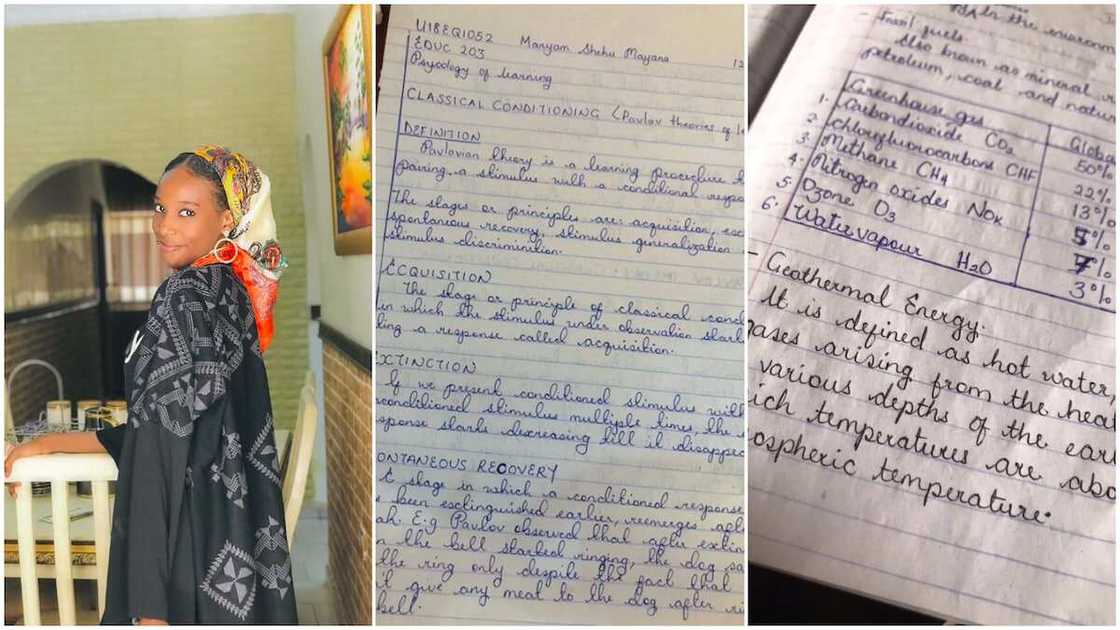 U18EQ1052 Maryam Shehu Mayana 12
EDUC 203
Psycology of learning
CLASSICAL CONDITIONING (Pavlov theories of
DEFINITION
Pavlovian theory is a learning procedure
pairing a stimulus with a conditional respo
The stages or principles are: acquisition,
spontaneous recovery, stimulus generalization
stimulus discrimination.
ACQUISITION
The stage or principle of classical cond
in which the stimulus under observation star
a response called acquisition.
EXTINCTION
If we present conditioned stimulus with
conditioned stimulus multiple times, the
response starts decreasing till it disappe
ONTANEOUS RECOVERY
A stage in which a conditioned response
been exctinguished earlier, reemerges
E.g Pavlov observed that after extin
the bell started ringing, the dog sa
the ring only despite the fact that
give any meat to the dog after
bell.
in the
fossil fuels
Also known as mineral
petroleum, coal and nat
Greenhouse gas Globa
1. Carbondioxide CO2 50%
2. Chloroflurocarbons CHF 22%
3. Methane CH4 13%
4. Nitrogen oxides NOx 5%
5. Ozone O3 7%
6. Water vapour H2O 3%
- Geothermal Energy.
It is defined as hot water,
gases arising from the hea
various depths of the ear
ich temperatures are abo
ospheric temperature.